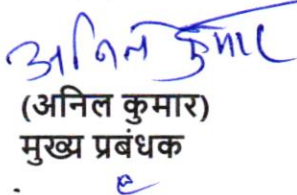 अनिल कुमार
(अनिल कुमार)
मुख्य प्रबंधक